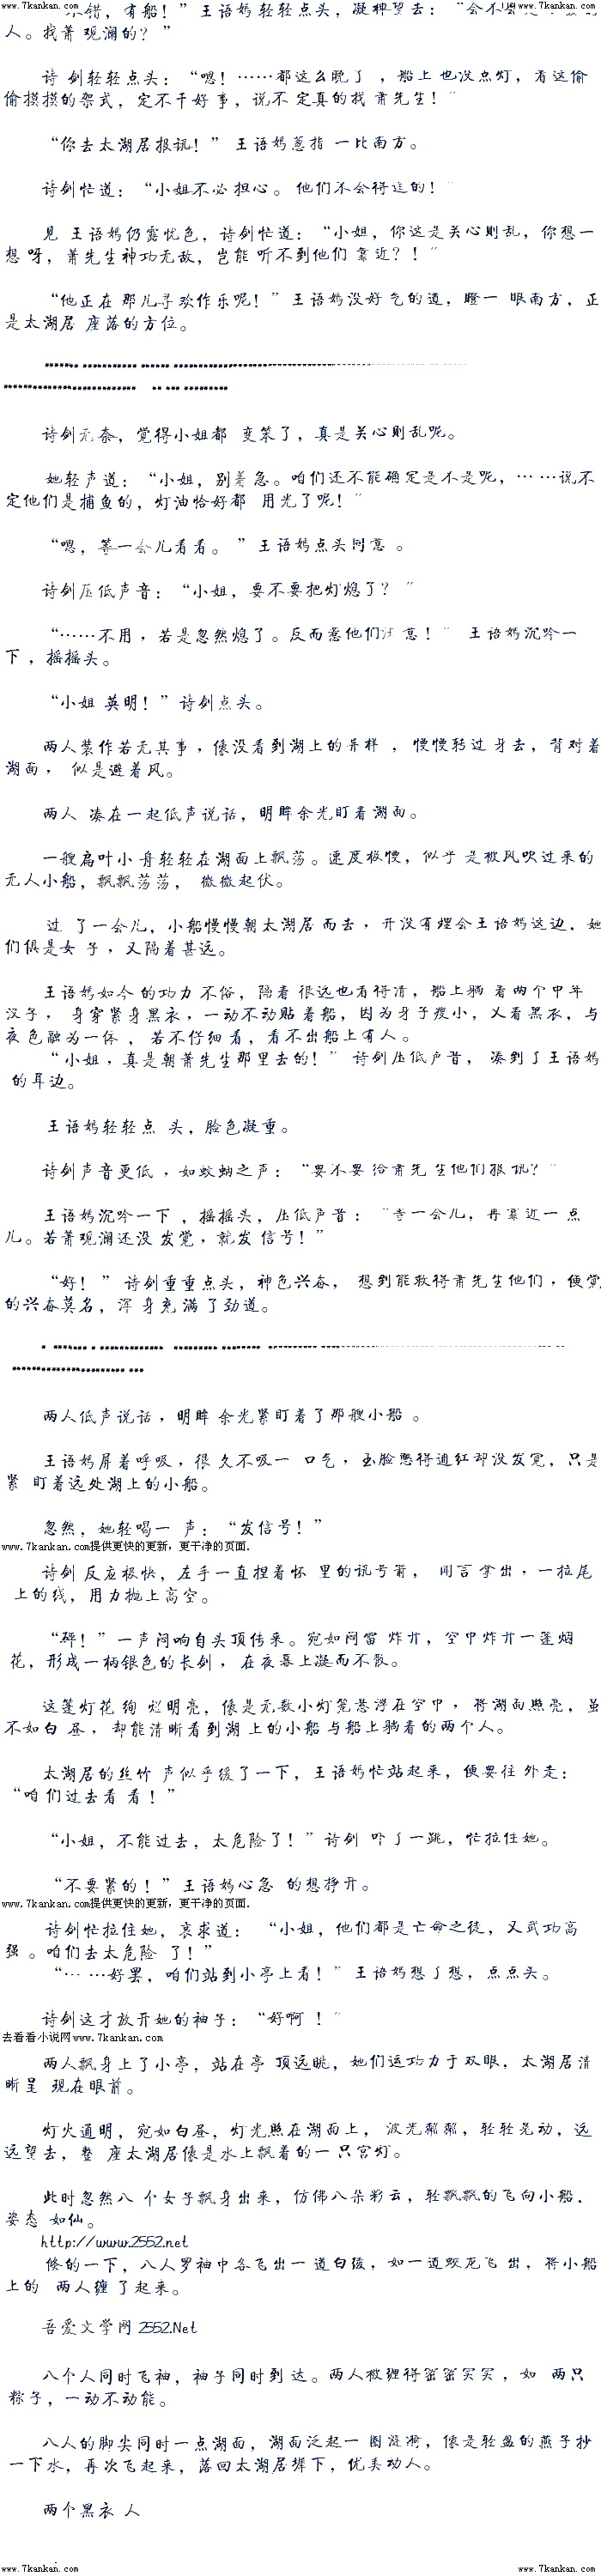 www.7kankan.com www.7kankan.com
错，有船！”王语嫣轻轻点头，凝神望去：“会不会是
人。找萧 观澜的？”
诗 剑轻轻点头：“嗯！……都这么晚了 ，船上 也没点灯，看这偷
偷摸摸的架式，定不干好事，说不 定真的找 萧先生！”
“你去太湖居报讯！” 王语嫣葱指 一比南方。
诗剑忙道：“小姐不必 担心。 他们不会得逞的！”
见 王语嫣仍露忧色，诗剑忙道：“小姐，你这是关心则乱，你想一
想 呀，萧先生神功无敌，岂能 听不到他们 靠近？！”
“他正在 那儿寻欢作乐呢！”王语嫣没好 气的道，瞪一 眼南方，正
是太湖居 座落的方位。
诗剑无奈，觉得小姐都 变笨了，真是关心则乱呢。
她轻声道：“小姐，别着急。咱们还不能确定是不是呢，… …说不
定他们是捕鱼的，灯油恰好都 用光了呢！”
“嗯，等一会儿看看。 ”王语嫣点头同意 。
诗剑压低声音：“小姐，要不要把灯熄了？ ”
“……不用，若是忽然熄了。反而惹他们注意！” 王语嫣沉吟一
下，摇摇头。
“小姐 英明！”诗剑点头。
两人装作若无其事，像没看到湖上的异样 ， 慢慢转过 身去，背对着
湖面， 似是避着风。
两人 凑在一起低声说话，明眸余光盯着湖面。
一艘扁叶小 舟轻轻在湖面上飘荡。速度极慢，似乎 是被风吹过来的
无人小船，飘飘荡荡， 微微起伏。
过 了一会儿，小船慢慢朝太湖居 而去，并没有理会王语嫣这边，她
们俱是女 子，又隔着甚远。
王语嫣如今 的功力 不俗，隔着 很远也看得清，船上躺 着两个中年
汉子， 身穿紧身黑衣，一动不动贴 着船，因为身子瘦小，又着黑衣，与
夜 色融为一体 ， 若不仔细 看，看不 出船上有人。
“小姐，真是朝萧先生那里去的！” 诗剑压低声音， 凑到了王语嫣
的耳边。
王语嫣轻轻点 头，脸色凝重。
诗剑声音更低，如蚊蚋之声：“要不要 给萧先 生他们报 讯？”
王语嫣沉吟一下 ，摇摇头，压低声音： “等一会儿，再靠近一 点
儿。若萧观澜还没 发觉，就发 信号！”
“好！ ” 诗剑重重点头，神色兴奋， 想到能救得萧先生他们，便觉
的兴奋莫名，浑 身充满 了劲道。
两人低声说话，明眸 余光紧盯着了那艘小船 。
王语嫣屏着呼吸，很 久不吸一 口气，玉脸憋得通红却没发觉，只是
紧 盯着远处湖上的小船。
忽然，她轻喝一 声：“发信号！”
www.7kankan.com提供更快的更新，更干净的页面.
诗剑 反应极快，左手一直捏着怀 里的讯号箭， 闻言 拿出，一拉尾
上的线，用力抛上高空。
“砰！”一声闷响自头顶传来。宛如闷雷 炸开，空中炸开一蓬烟
花，形成一柄银色的长剑 ，在夜幕上凝而不散。
这蓬灯花 绚 烂明亮，像是无数小灯笼悬浮在空中，将湖面照亮，虽
不如白 昼，却能清晰看到湖 上的小船 与船上躺着的两个人。
太湖居的丝竹 声似乎缓了一下，王语嫣忙站起来，便要往 外走：
“咱 们过去看 看！”
“小姐，不能过去，太危险了！”诗剑 吓了一跳，忙拉住她。
“不要紧的！”王语嫣心急 的想挣开。
www.7kankan.com提供更快的更新，更干净的页面.
诗剑忙拉住她，哀求道： “小姐，他们都是亡命之徒，又武功高
强 。咱们去太危险 了！”
“… …好罢，咱们站到小亭上看！”王语嫣想了想，点点头。
诗剑这才放开她的袖子：“好啊 ！”
去看看小说网www.7kankan.com
两人飘身上了小亭，站在亭 顶远眺，她们运功力于双眼，太湖居清
晰呈 现在眼前。
灯火通明，宛如白昼，灯光照在湖面上， 波光粼粼，轻轻晃动，远
远望去，整 座太湖居像是水上飘着的一 只宫灯。
此时忽然八 个女子飘身出来，仿佛八朵彩云，轻飘飘的飞向小船．
姿态 如仙。
http://www.2552.net
倏的一下，八人罗袖中各飞出一 道白绫，如一道蛟龙飞 出，将小船
上的 两人缠 了起来。
吾爱文学网 2552.Net
八个人同时飞袖，袖子同时到 达。两人被缠得密密实实，如 两只
粽子，一动不动能。
八人的脚尖同时一点湖面，湖面泛起一 圈涟漪，像是轻盈的燕子抄
一下水，再次飞起来，落回太湖居 下，优美动人。
两个黑衣 人
www.7kankan.com www.7kankan.com